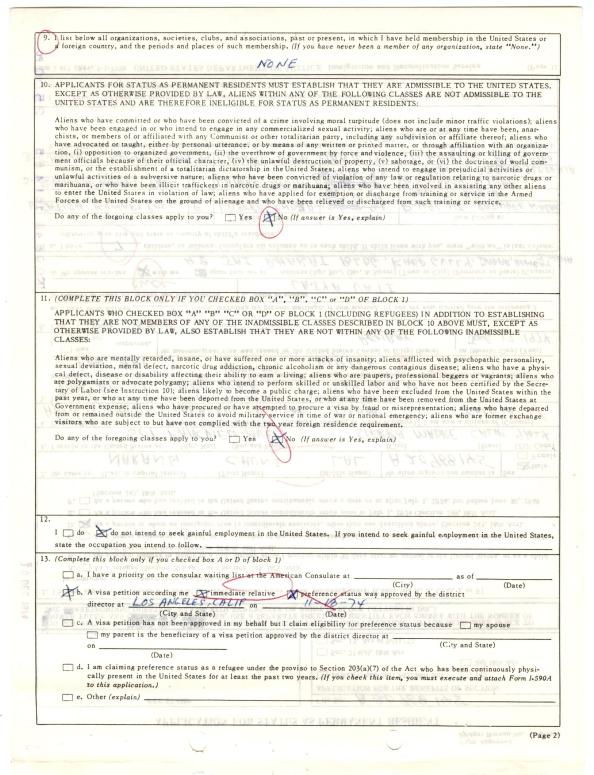 9. I list below all organizations, societies, clubs, and associations, past or present, in which I have held membership in the United States or
a foreign country, and the periods and places of such membership. (If you have never been a member of any organization, state "None.")
NONE
10. APPLICANTS FOR STATUS AS PERMANENT RESIDENTS MUST ESTABLISH THAT THEY ARE ADMISSIBLE TO THE UNITED STATES.
EXCEPT AS OTHERWISE PROVIDED BY LAW, ALIENS WITHIN ANY OF THE FOLLOWING CLASSES ARE NOT ADMISSIBLE TO THE
UNITED STATES AND ARE THEREFORE INELIGIBLE FOR STATUS AS PERMANENT RESIDENTS:
Aliens who have committed or who have been convicted of a crime involving moral turpitude (does not include minor traffic violations); aliens
who have been engaged in or who intend to engage in any commercialized sexual activity; aliens who are or at any time have been, anar-
chists, or members of or affiliated with any Communist or other totalitarian party, including any subdivision or affiliate thereof; aliens who
have advocated or taught, either by personal utterance, or by means of any written or printed matter, or through affiliation with an organiza-
tion, (i) opposition to organized government, (ii) the overthrow of government by force and violence, (iii) the assaulting or killing of govern-
ment officials because of their official character, (iv) the unlawful destruction of property, (v) sabotage, or (vi) the doctrines of world com-
munism, or the establishment of a totalitarian dictatorship in the United States; aliens who intend to engage in prejudicial activities or
unlawful activities of a subversive nature; aliens who have been convicted of violation of any law or regulation relating to narcotic drugs or
marihuana, or who have been illicit traffickers in narcotic drugs or marihuana; aliens who have been involved in assisting any other aliens
to enter the United States in violation of law; aliens who have applied for exemption or discharge from training or service in the Armed
Forces of the United States on the ground of alienage and who have been relieved or discharged from such training or service.
Do any of the forgoing classes apply to you? Yes X No (If answer is Yes, explain)
11. (COMPLETE THIS BLOCK ONLY IF YOU CHECKED BOX "A", "B", "C" or "D" OF BLOCK 1)
APPLICANTS WHO CHECKED BOX "A" "B" "C" OR "D" OF BLOCK 1 (INCLUDING REFUGEES) IN ADDITION TO ESTABLISHING
THAT THEY ARE NOT MEMBERS OF ANY OF THE INADMISSIBLE CLASSES DESCRIBED IN BLOCK 10 ABOVE MUST, EXCEPT AS
OTHERWISE PROVIDED BY LAW, ALSO ESTABLISH THAT THEY ARE NOT WITHIN ANY OF THE FOLLOWING INADMISSIBLE
CLASSES:
Aliens who are mentally retarded, insane, or have suffered one or more attacks of insanity; aliens afflicted with psychopathic personality,
sexual deviation, mental defect, narcotic drug addiction, chronic alcoholism or any dangerous contagious disease; aliens who have a physi-
cal defect, disease or disability affecting their ability to earn a living; aliens who are paupers, professional beggars or vagrants; aliens who
are polygamists or advocate polygamy; aliens who intend to perform skilled or unskilled labor and who have not been certified by the Secre-
tary of Labor (see Instruction 10); aliens likely to become a public charge; aliens who have been excluded from the United States within the
past year, or who at any time have been deported from the United States, or who at any time have been removed from the United States at
Government expense; aliens who have procured or have attempted to procure a visa by fraud or misrepresentation; aliens who have departed
from or remained outside the United States to avoid military service in time of war or national emergency; aliens who are former exchange
visitors who are subject to but have not complied with the two year foreign residence requirement.
Do any of the foregoing classes apply to you? Yes X No (If answer is Yes, explain)
12.
I do X do not intend to seek gainful employment in the United States. If you intend to seek gainful employment in the United States,
state the occupation you intend to follow.
13. (Complete this block only if you checked box A or D of block 1)
a. I have a priority on the consular waiting list at the American Consulate at as of
(City) (Date)
X b. A visa petition according me X immediate relative X preference status was approved by the district
director at LOS ANGELES, CALIF on 11-18-74
(City and State) (Date)
c. A visa petition has not been approved in my behalf but I claim eligibility for preference status because my spouse
my parent is the beneficiary of a visa petition approved by the district director at
(City and State)
on
(Date)
d. I am claiming preference status as a refugee under the proviso to Section 203(a)(7) of the Act who has been continuously physi-
cally present in the United States for at least the past two years. (If you check this item, you must execute and attach Form I-590A
to this application.)
e. Other (explain)
(Page 2)